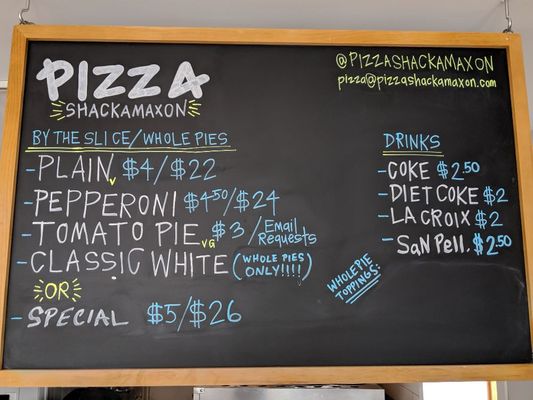 PIZZA
SHACKAMAXON
@PIZZASHACKAMAXON
pizza@pizzashackamaxon.com
BY THE SLICE/WHOLE PIES
-PLAIN V $4/$22
-PEPPERONI $4.50/$24
-TOMATO PIE VG $3 / Email Requests
-CLASSIC WHITE (WHOLE PIES ONLY!!!!)
OR
-SPECIAL $5/$26
DRINKS
-COKE $2.50
-DIET COKE $2
-LA CROIX $2
-SAN PELL. $2.50
WHOLE PIE
TOPPINGS: